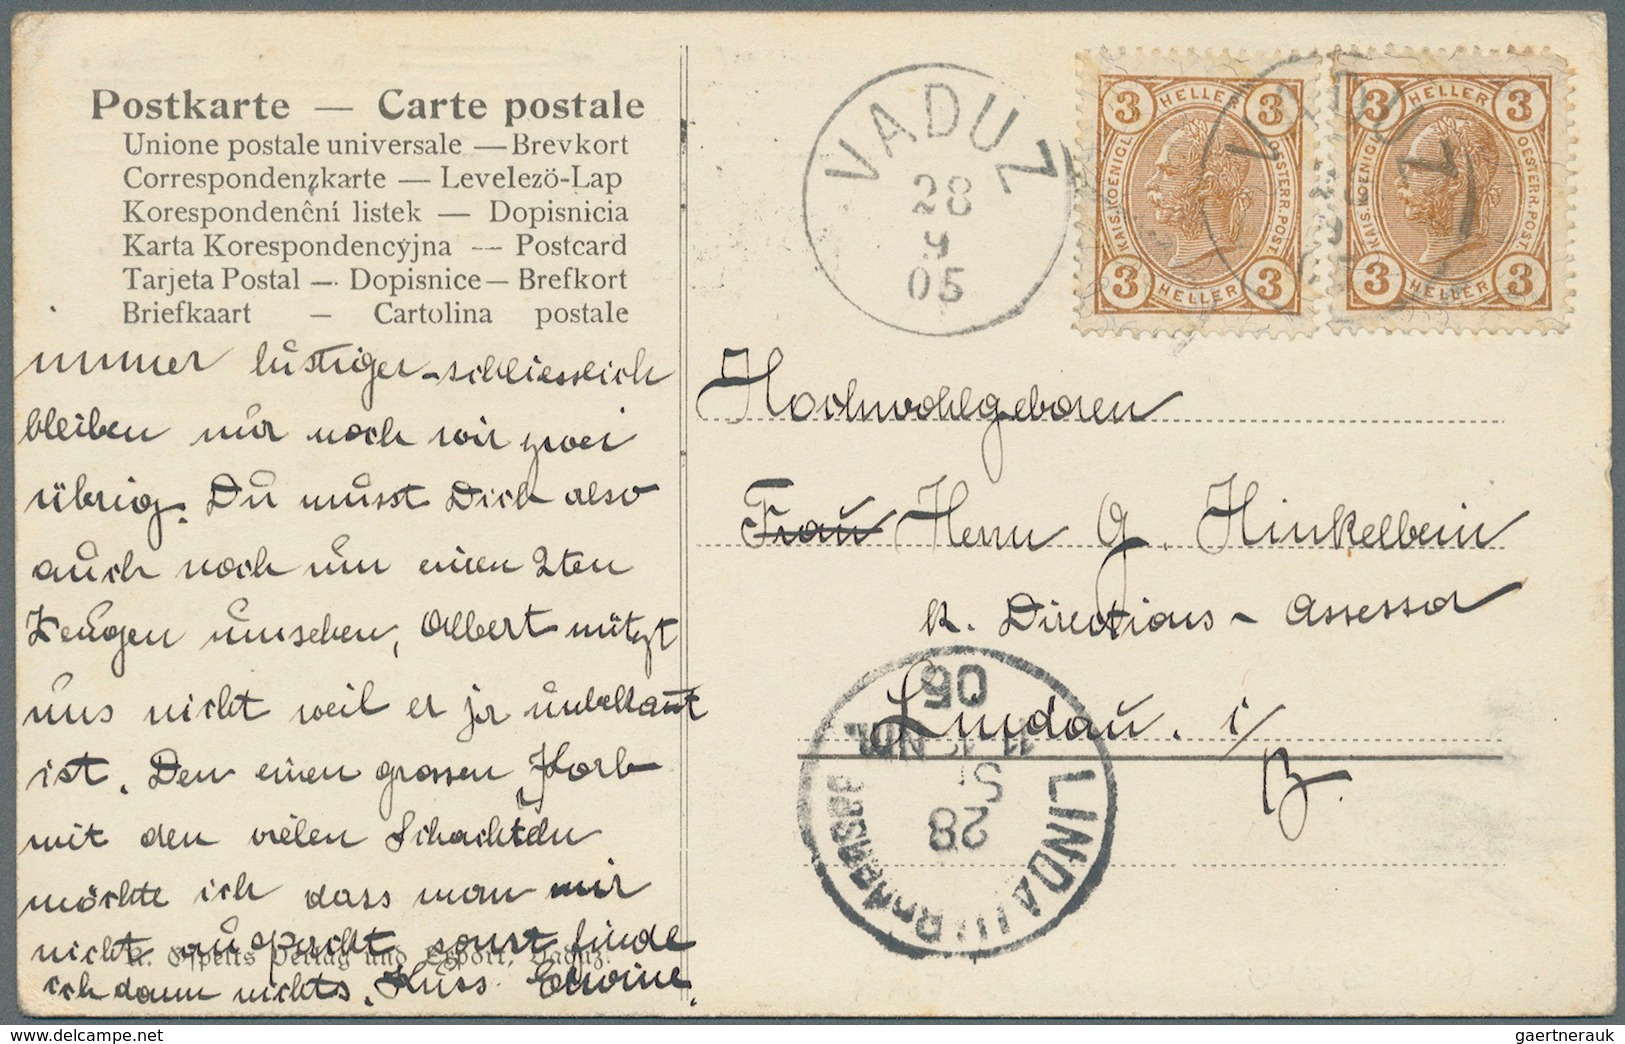 Postkarte — Carte postale
Unione postale universale — Brevkort
Correspondenzkarte — Levelező-Lap
Korespondenêní listek — Dopisnicia
Karta Korespondencyjna — Postcard
Tarjeta Postal — Dopisnice — Brefkort
Briefkaart — Cartolina postale
immer lustiger - schliesslich
bleiben nur noch wir zwei
übrig. Du musst Dich also
auch noch um einen 2ten
Zeugen umsehen, Albert nützt
uns nicht weil er ja unbekannt
ist. Den einen grossen Korb
mit den vielen Schachteln
möchte ich dass man mir
nicht auspackt, sonst finde
ich dann nichts. Kuss
Verlag und Export, Vaduz.
VADUZ
28
9
05
3 HELLER 3
KAIS. KOENIGL. OESTERR. POST.
3 HELLER 3
3 HELLER 3
KAIS. KOENIGL. OESTERR. POST.
3 HELLER 3
VADUZ
Hochwohlgeboren
Frau Herrn G. Hinkelbein
k. Directions - Assessor
Lindau. i/
B.
LINDAU
28
05
delcampe.net
gaertnerauk